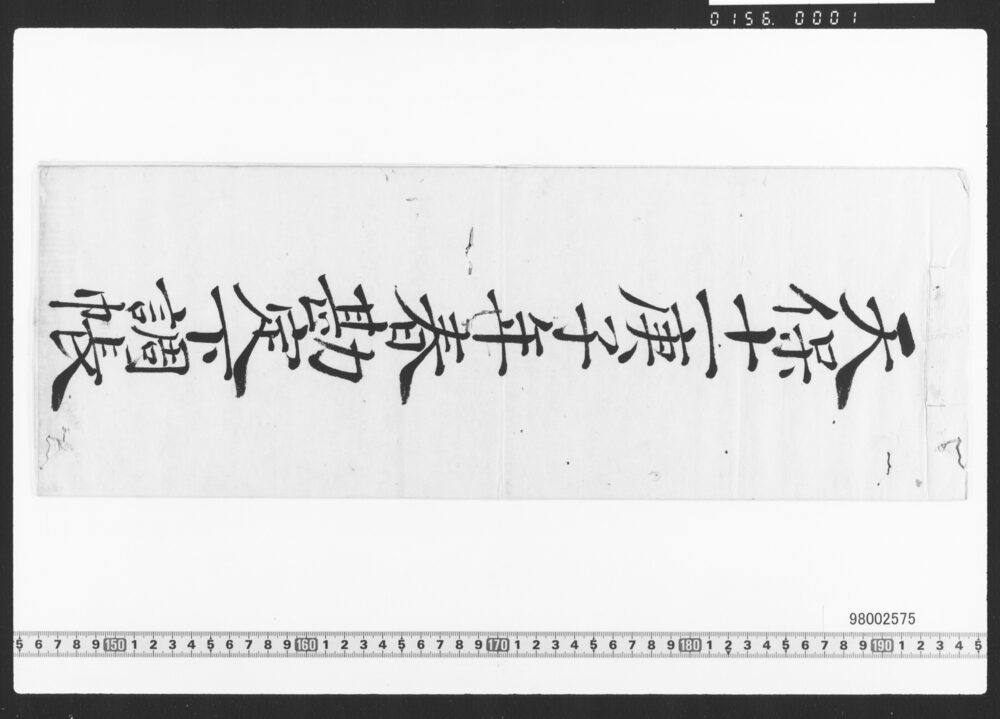 0156. 0001
天保十一庚子年春勘定下調帳
98002575
5 6 7 8 9 150 1 2 3 4 5 6 7 8 9 160 1 2 3 4 5 6 7 8 9 170 1 2 3 4 5 6 7 8 9 180 1 2 3 4 5 6 7 8 9 190 1 2 3 4 5